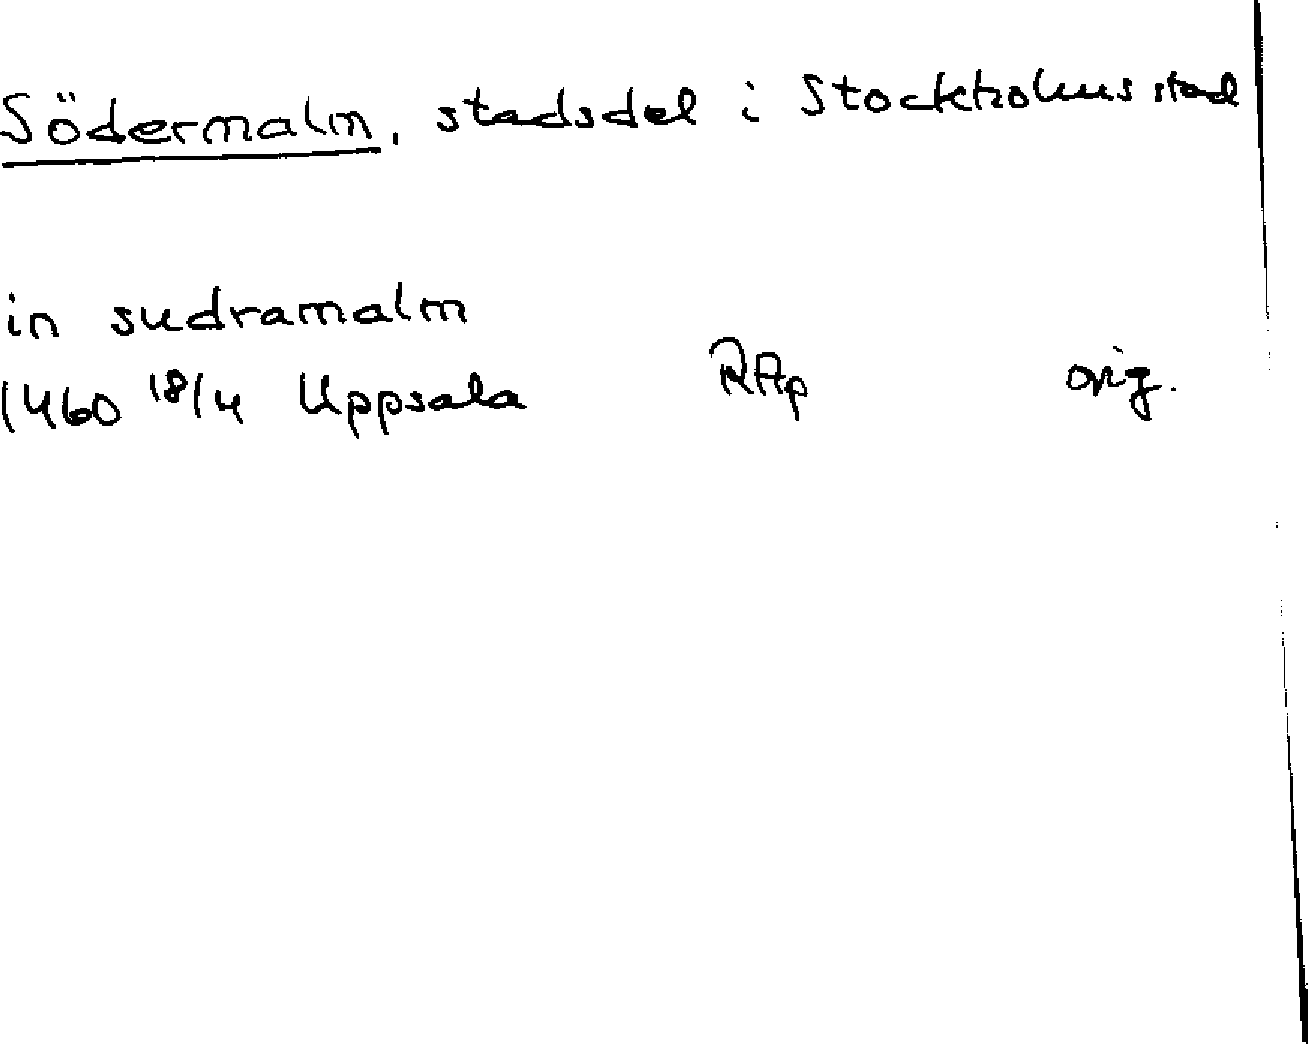 Södermalm, stadsdel i Stockholms stad
in sudramalm
1460 18/4 Uppsala RAp orig.